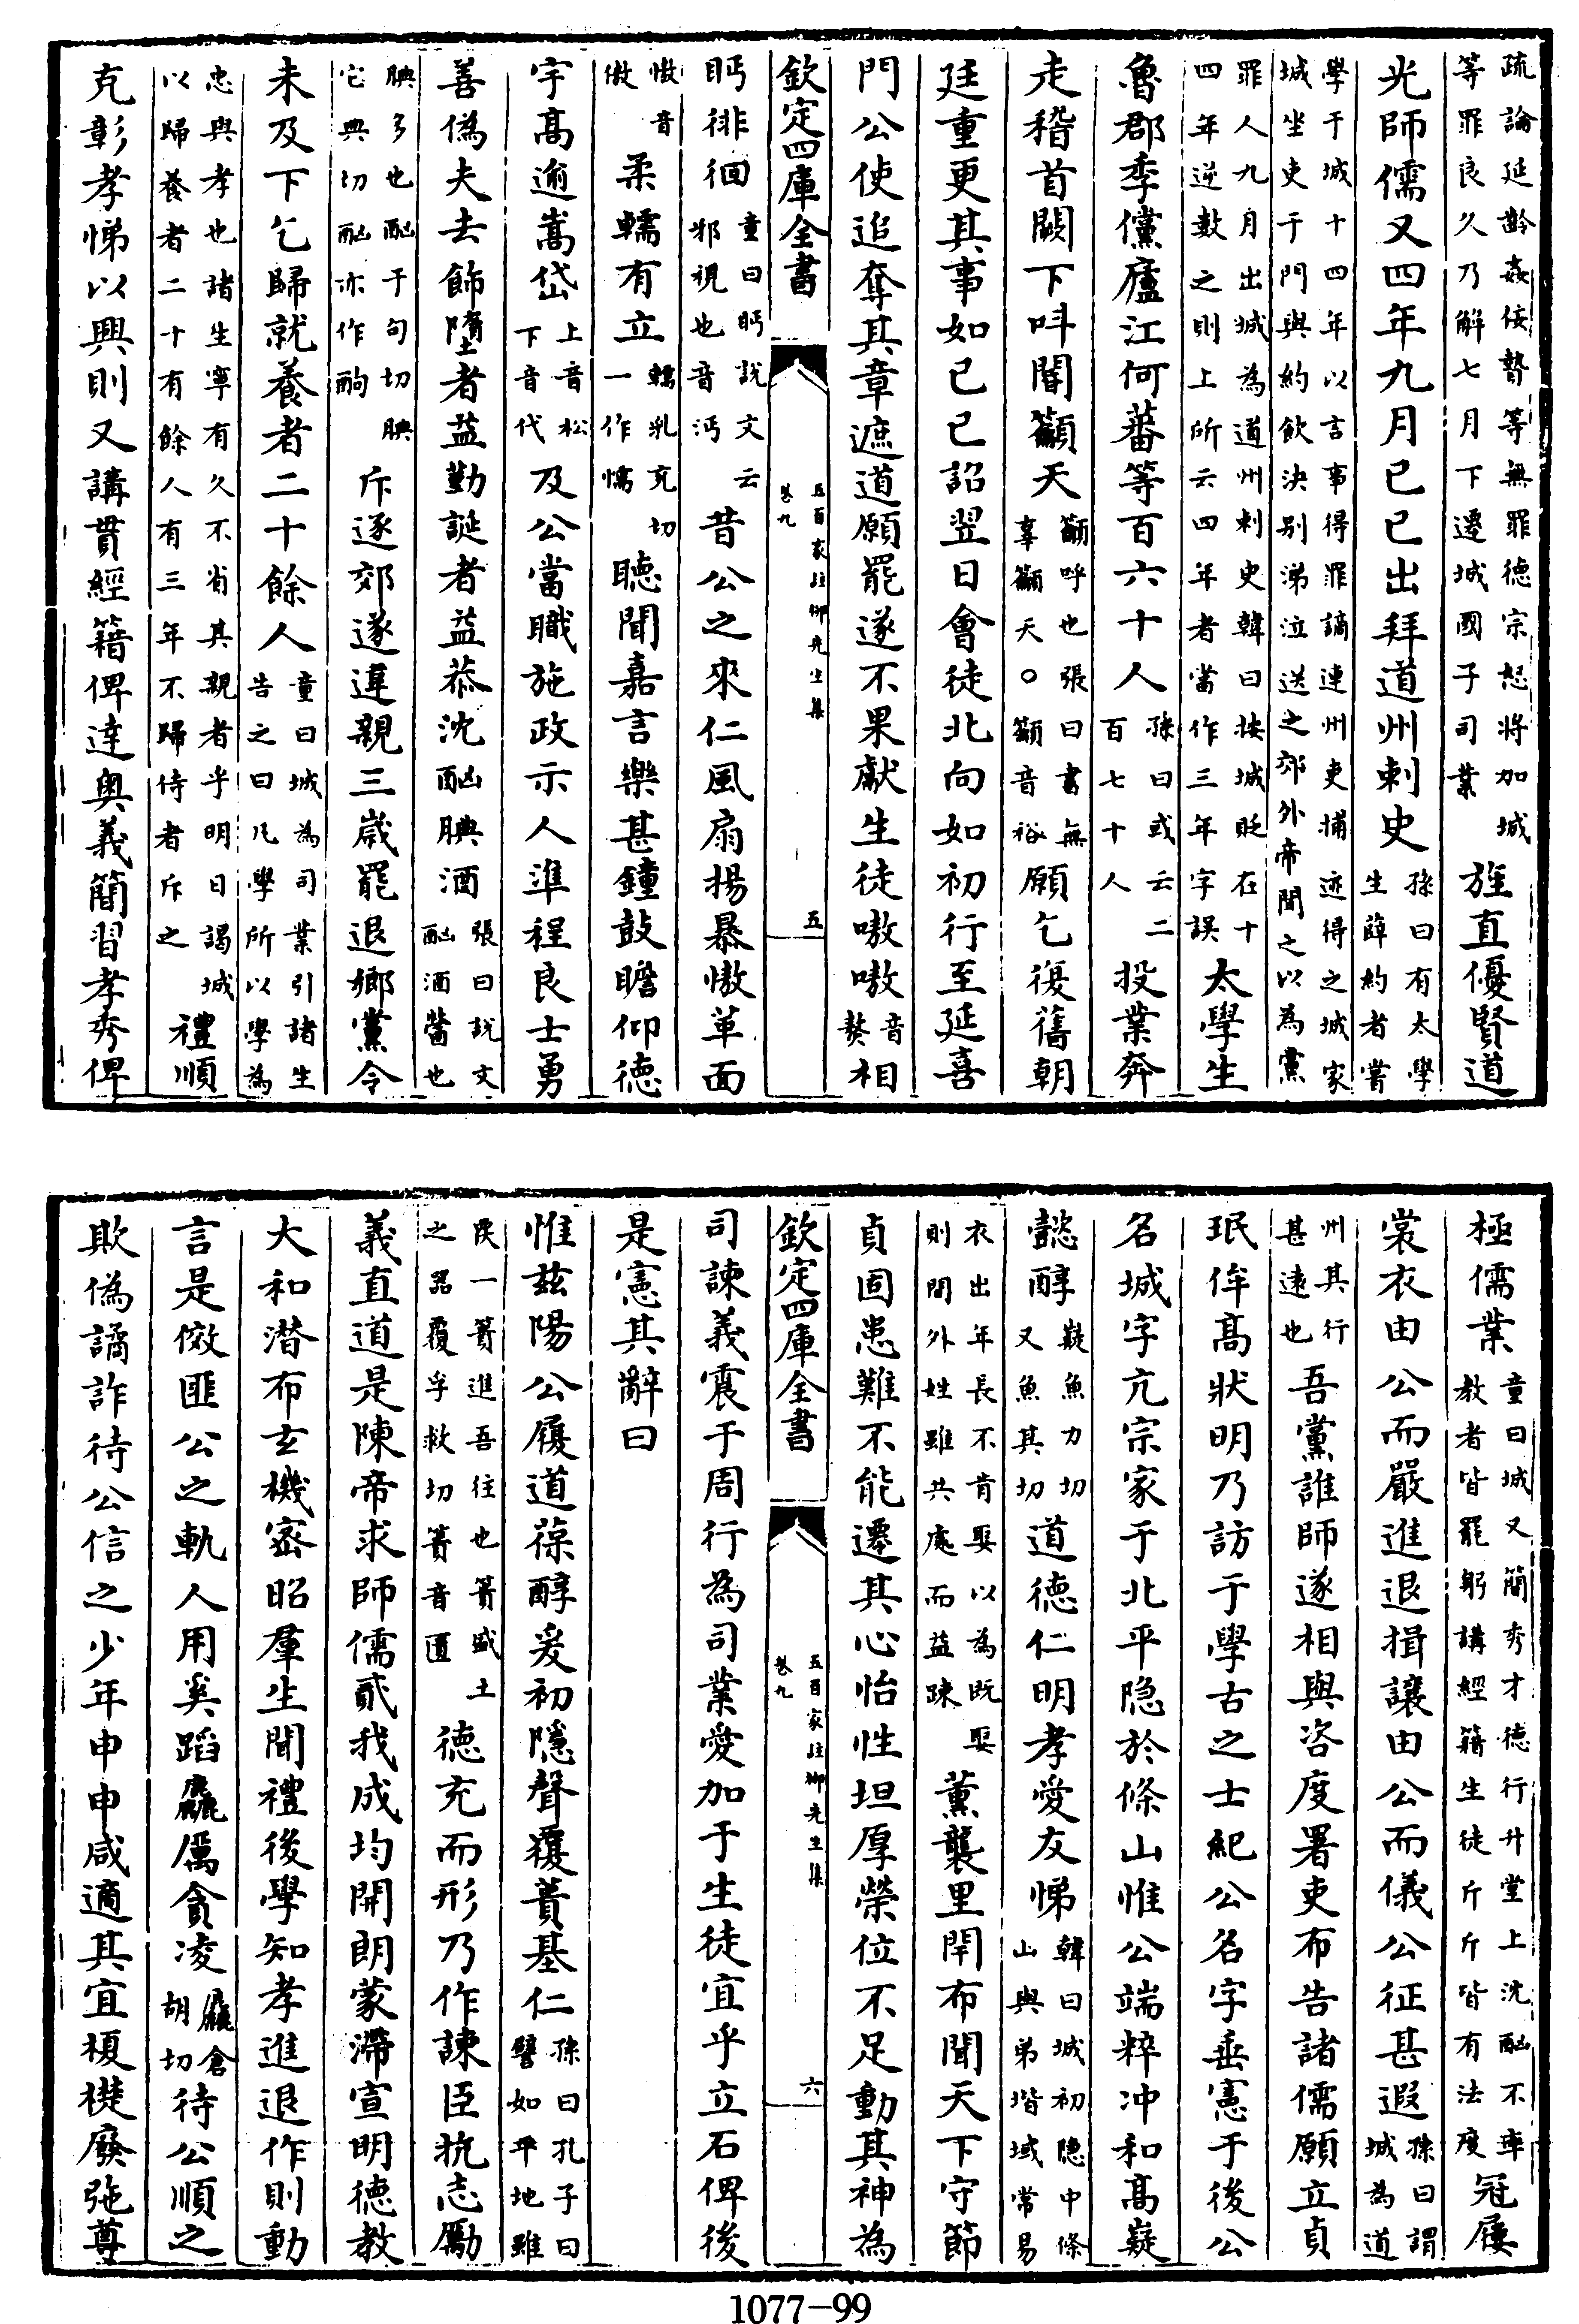 疏論延齡姦佞贄等無罪德宗怒將加城等罪良久乃解七月下遷城國子司業旌直優賢道
光師儒又四年九月已巳出拜道州刺史孫曰有太學生薛約者嘗
學于城十四年以言事得罪謫連州吏捕迹得之城家城坐吏于門與約飲決别涕泣送之郊外帝聞之以為黨
罪人九月出城為道州刺史韓曰按城貶在十四年逆數之則上所云四年者當作三年字誤太學生
魯郡季儻廬江何蕃等百六十人孫曰或云二百七十人投業奔
走稽首闕下叫閽籲天籲呼也張曰書無辜籲天○籲音裕願乞復舊朝
廷重更其事如已已詔翌日會徒北向如初行至延喜
門公使追奪其章遮道願罷遂不果獻生徒嗷嗷音嶅相
欽定四庫全書 五百家注柳先生集 卷九 五
眄徘徊童曰眄說文云邪視也音沔昔公之來仁風扇揚暴慠革面
慠音傲柔蠕有立蠕乳兖切一作懦聽聞嘉言樂甚鐘鼓瞻仰德
宇高逾嵩岱上音松下音代及公當職施政示人準程良士勇
善偽夫去飾墮者益勤誕者益恭沈酗腆酒張曰說文酗酒醟也
腆多也酗于句切腆它典切酗亦作酮斥逐郊遂違親三嵗罷退鄉黨令
未及下乞歸就養者二十餘人童曰城為司業引諸生告之曰凡學所以學為
忠與孝也諸生寧有久不省其親者乎明日謁城以歸養者二十有餘人有三年不歸侍者斥之禮順
克彰孝悌以興則又講貫經籍俾達奥義簡習孝秀俾
極儒業童曰城又簡秀才德行升堂上沈酗不率教者皆罷躬講經籍生徒斤斤皆有法度冠屨
裳衣由公而嚴進退揖讓由公而儀公征甚遐孫曰謂城為道
州其行甚遠也吾黨誰師遂相與咨度署吏布告諸儒願立貞
珉侔高狀明乃訪于學古之士紀公名字垂憲于後公
名城字亢宗家于北平隐於條山惟公端粹冲和高嶷
懿醇嶷魚力切又魚其切道德仁明孝愛友悌韓曰城初隐中條山與弟堦域常易
衣出年長不肯娶以為既娶則間外姓雖共處而益踈薰襲里閈布聞天下守節
貞固患難不能遷其心怡性坦厚榮位不足動其神為
欽定四庫全書 五百家註柳先生集 卷九 六
司諫義震于周行為司業愛加于生徒宜乎立石俾後
是憲其辭曰
惟兹陽公履道葆醇爰初隱聲覆蕢基仁孫曰孔子曰譬如平地雖
覆一簣進吾往也簣盛土之器覆孚救切簣音匱德充而形乃作諫臣抗志勵
義直道是陳帝求師儒貳我成均開朗蒙滯宣明德教
大和潛布玄機密昭羣生聞禮後學知孝進退作則動
言是傚匪公之軌人用奚蹈麤厲貪凌麤倉胡切待公順之
欺偽譎詐待公信之少年申申咸適其宜榎檚廢弛尊
1077-99